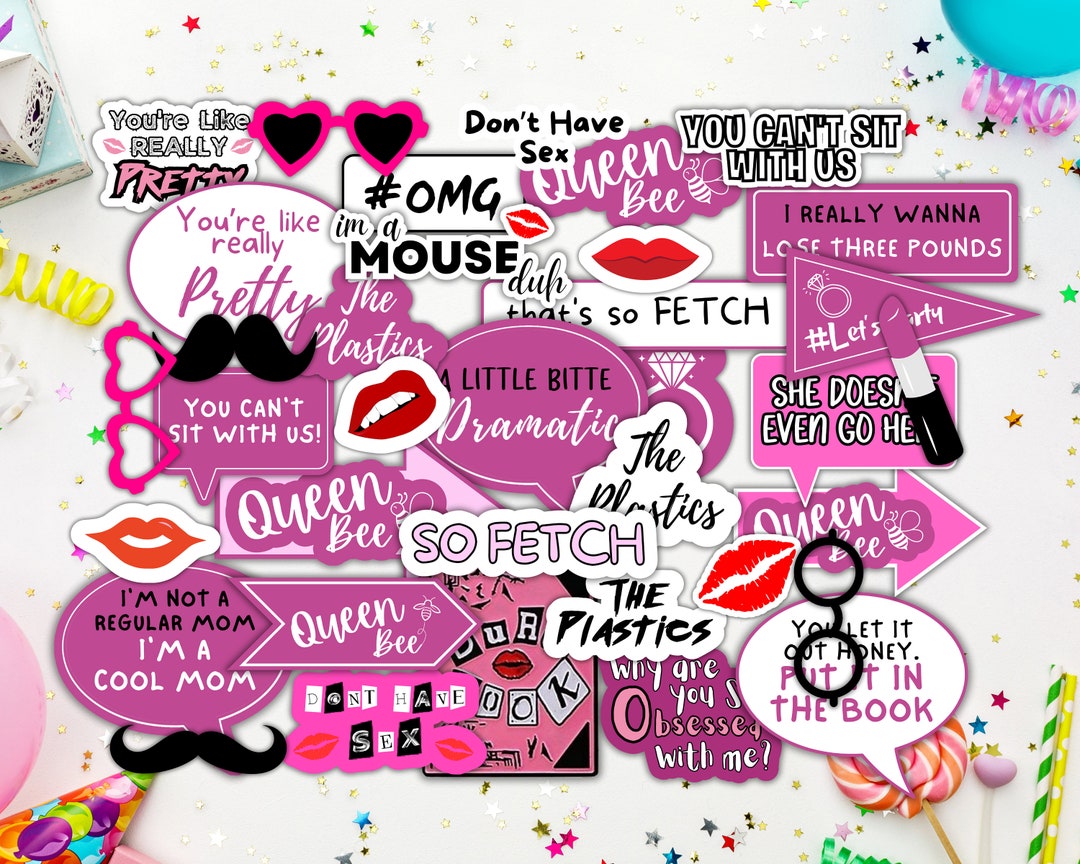 You're Like
REALLY
PRETTY
Don't Have
Sex
Queen
Bee
YOU CAN'T SIT
WITH US
#OMG
im a
MOUSE
duh
You're like
really
Pretty
I REALLY WANNA
LOSE THREE POUNDS
that's so FETCH
#Let's Party
The
Plastics
A LITTLE BITTE
Dramatic
SHE DOESN'T
EVEN GO HERE
YOU CAN'T
SIT WITH US!
The
Plastics
Queen
Bee
SO FETCH
Queen
Bee
I'M NOT A
REGULAR MOM
I'M A
COOL MOM
Queen
Bee
BURN
BOOK
THE
PLASTICS
YOU LET IT
OUT HONEY.
PUT IT IN
THE BOOK
DONT HAVE
SEX
Why are
you So
Obsessed
With me?